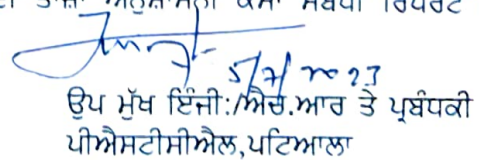 ਰਿਪੋਰਟ
5/7/2023
ਉਪ ਮੁੱਖ ਇੰਜੀ:/ਐਚ.ਆਰ ਤੇ ਪ੍ਰਬੰਧਕੀ
ਪੀਐਸਟੀਸੀਐਲ,ਪਟਿਆਲਾ